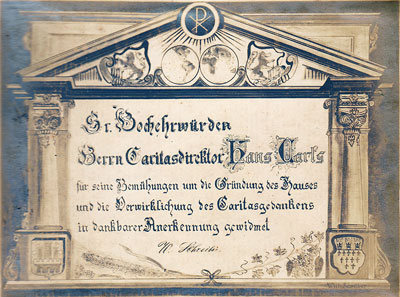 Sr. Hochehrwürden
Herrn Caritasdirektor Hans Carls
für seine Bemühungen um die Gründung des Hauses
und die Verwirklichung des Caritasgedankens
in dankbarer Anerkennung gewidmet
W.